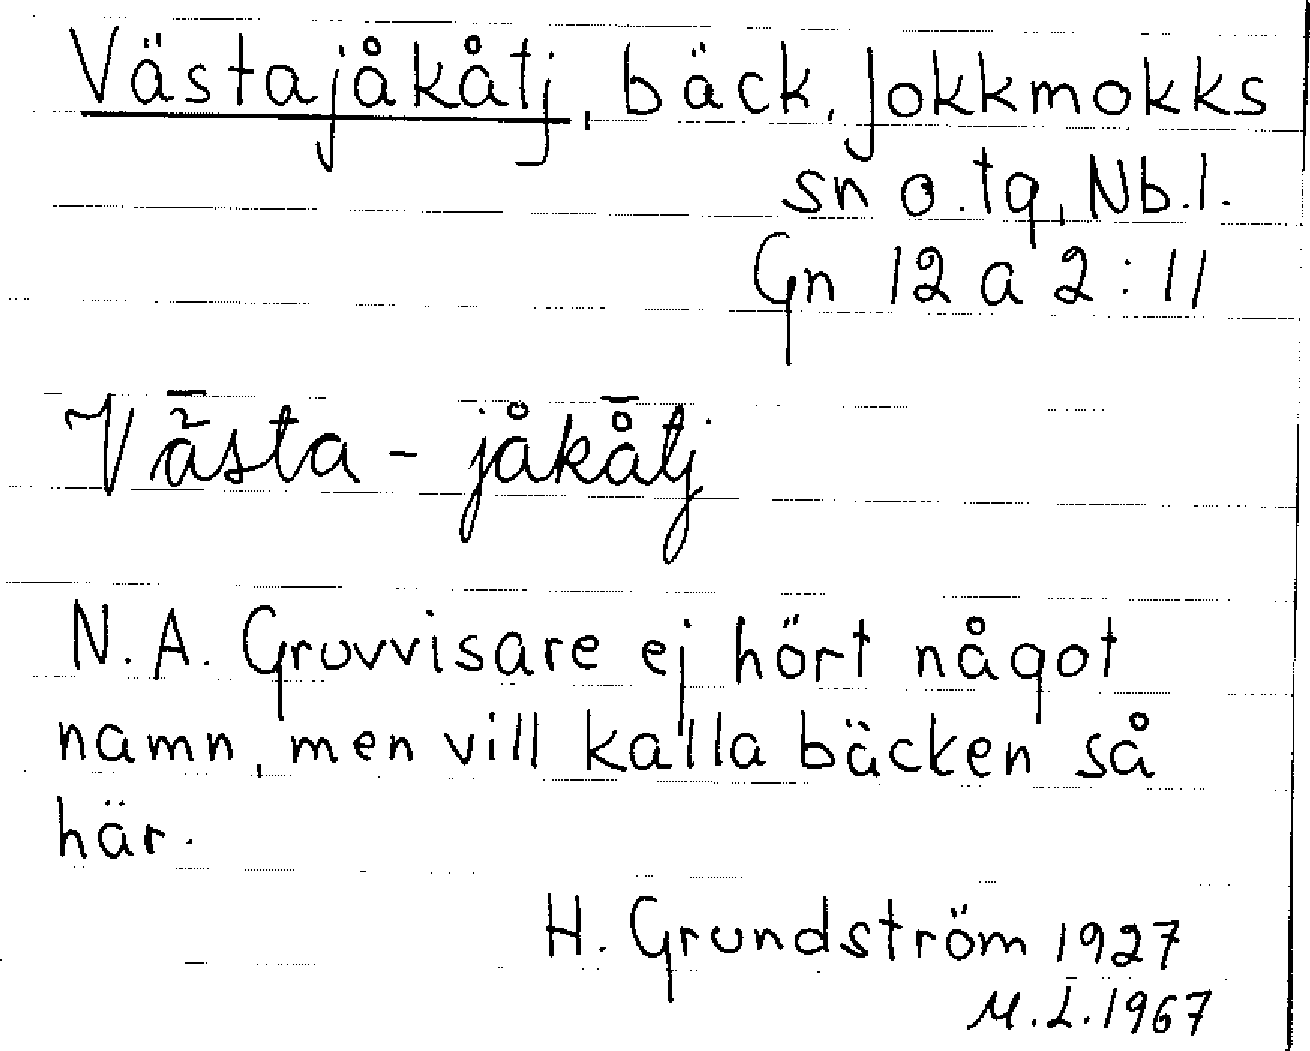 Västajåkåtj, bäck, Jokkmokks
sn o. tg, Nb.l.
Gn 12 a 2:11
Vǟsta-jåkå̄tj
N. A. Gruvvisare ej hört något
namn, men vill kalla bäcken så
här.
H. Grundström 1927
M.L.1967